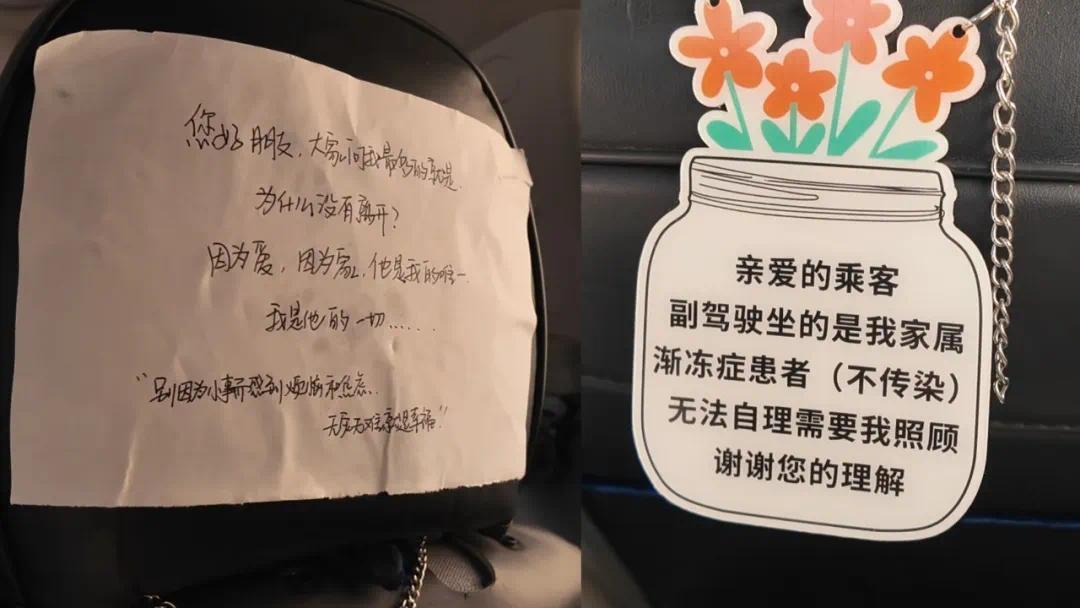 您好朋友，大家问我最多的就是
为什么没有离开？
因为爱，因为家，他是我的唯一
我是他的一切......
“别因为小事而感到烦恼和焦虑.
无灾无难就是幸福”
亲爱的乘客
副驾驶坐的是我家属
渐冻症患者（不传染）
无法自理需要我照顾
谢谢您的理解